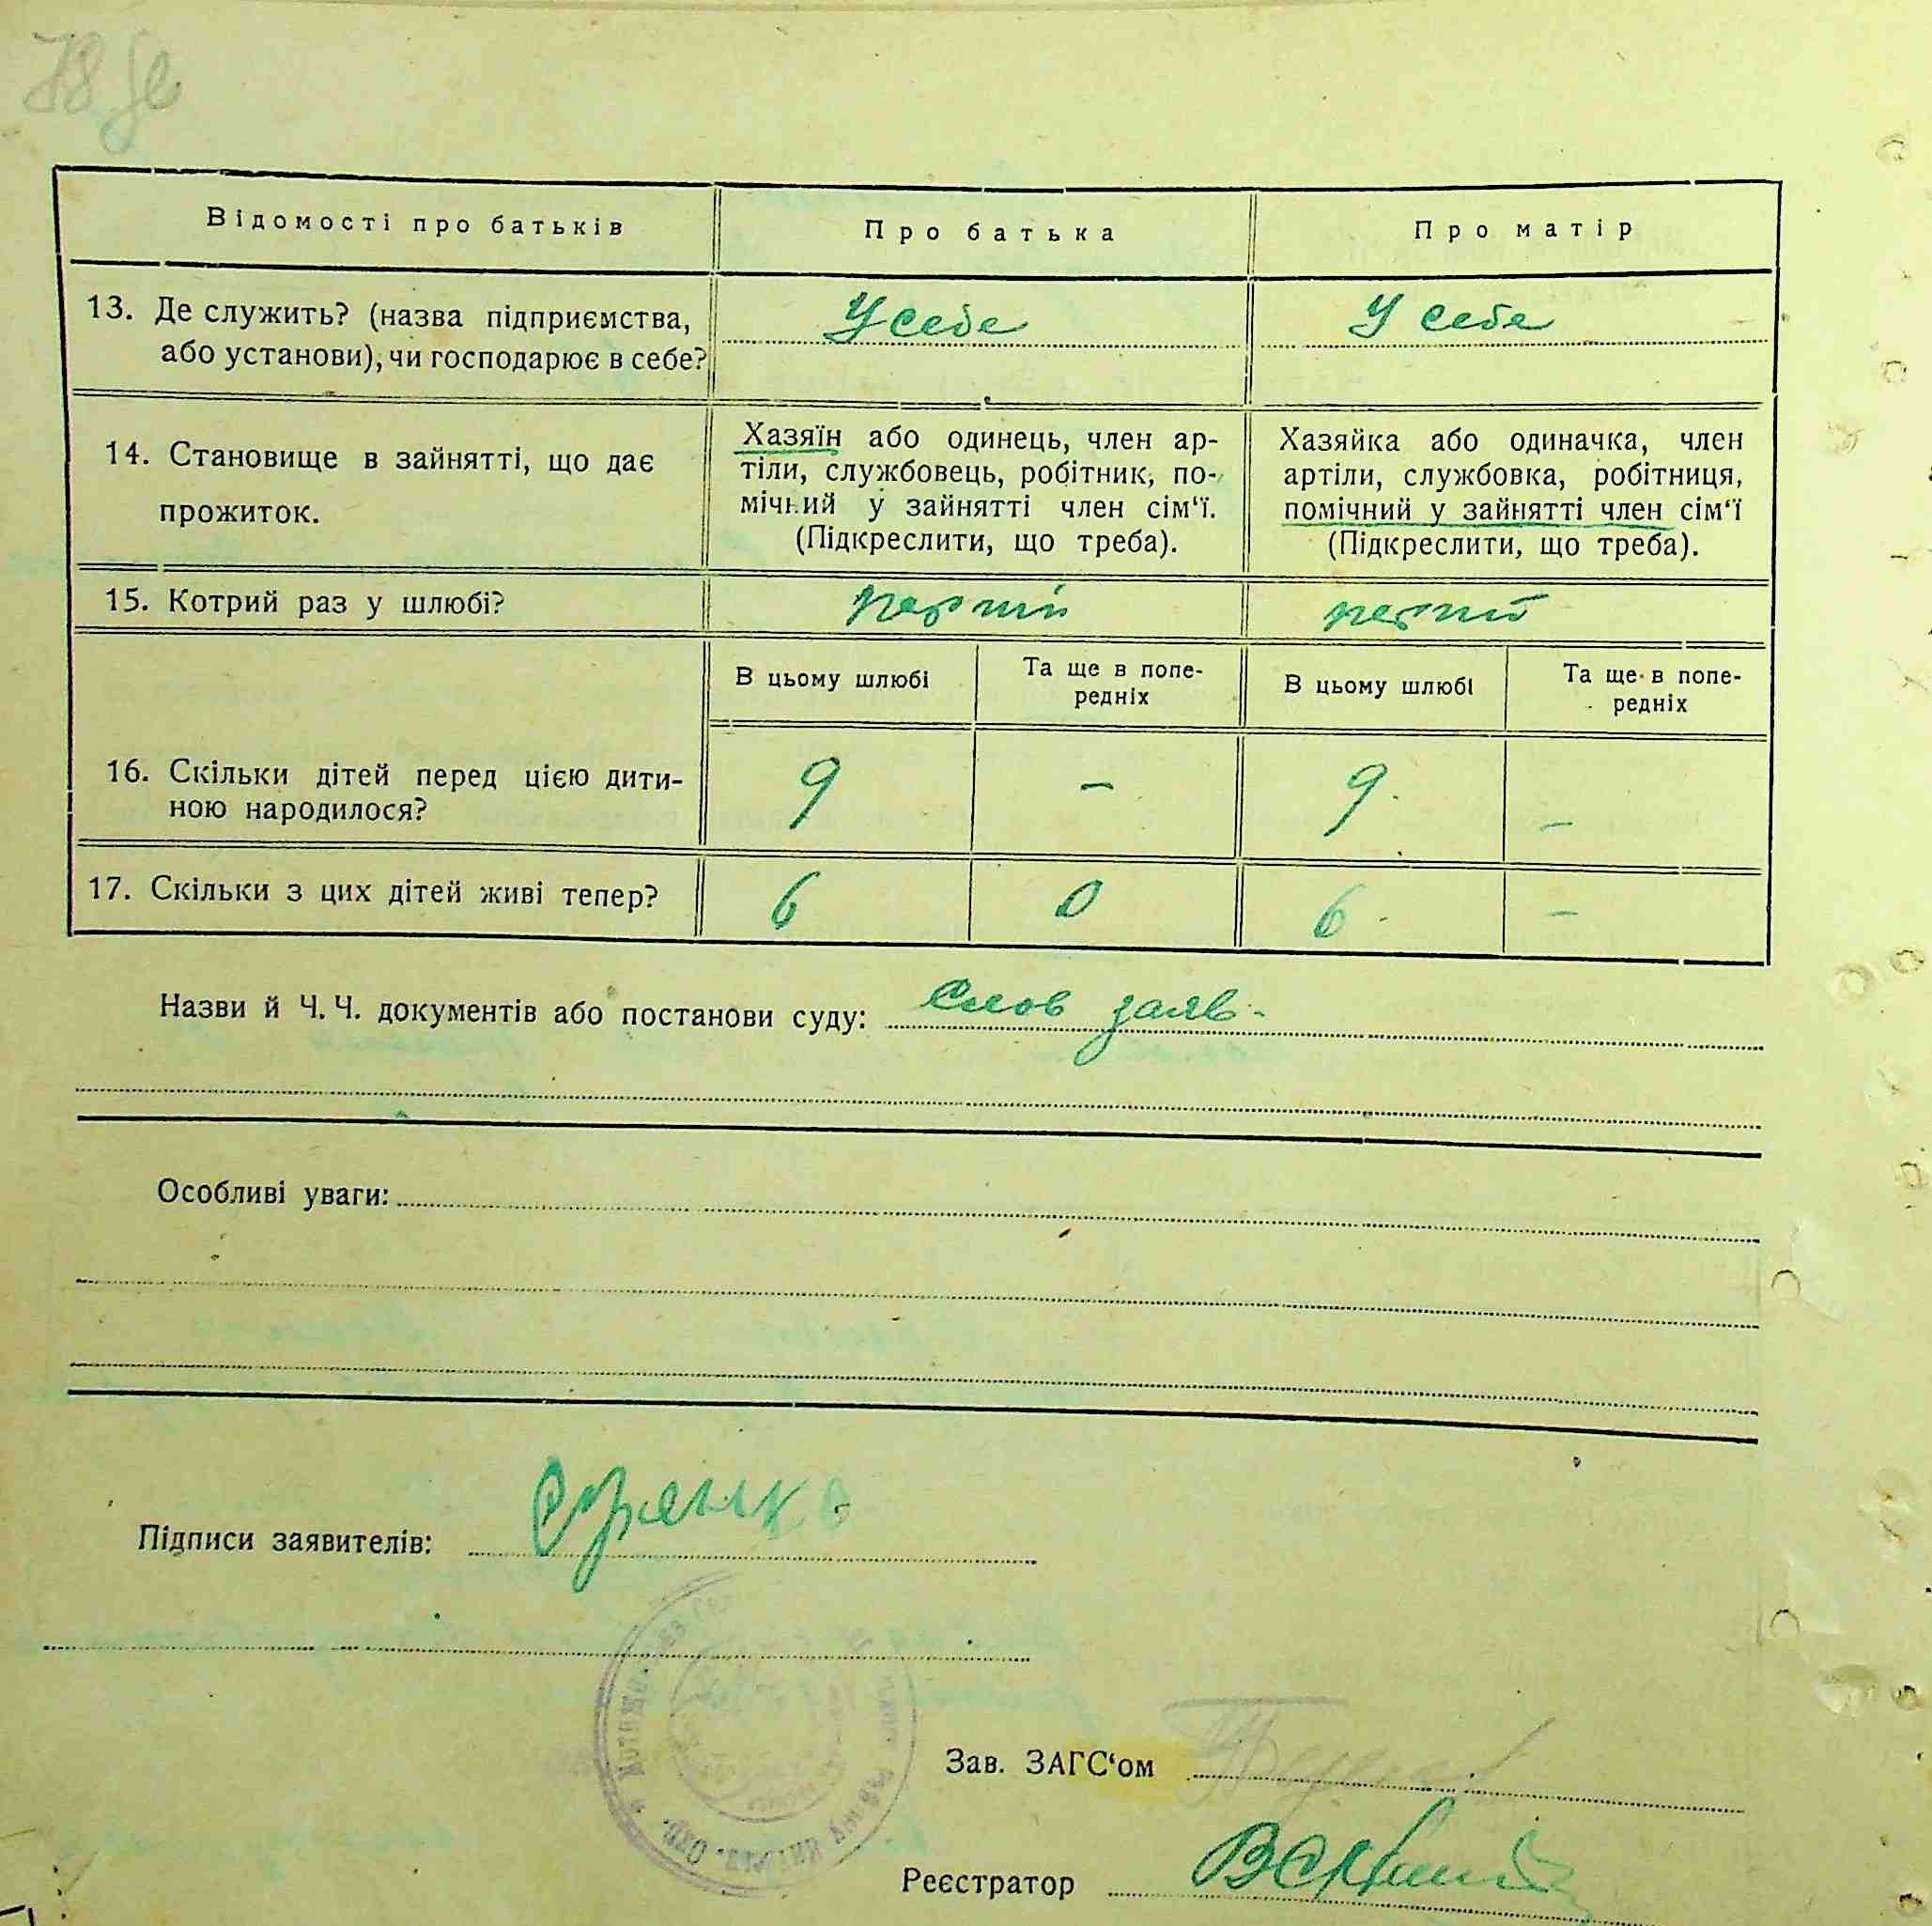 Відомості про батьків
Про батька
Про матір
13. Де служить? (назва підприємства,
або установи), чи господарює в себе?
У себе
У себе
14. Становище в зайнятті, що дає
прожиток.
Хазяїн або одинець, член ар-
тіли, службовець, робітник, по-
мічний у зайнятті член сім‘ї.
(Підкреслити, що треба).
Хазяйка або одиначка, член
артіли, службовка, робітниця,
помічний у зайнятті член сім‘ї
(Підкреслити, що треба).
15. Котрий раз у шлюбі?
В цьому шлюбі
Та ще в попе-
редніх
В цьому шлюбі
Та ще в попе-
редніх
16. Скільки дітей перед цією дити-
ною народилося?
9
–
9
–
17. Скільки з цих дітей живі тепер?
6
0
6
–
Назви й Ч. Ч. документів або постанови суду: Слов заяв-
Особливі уваги:
Підписи заявителів:
Зав. ЗАГС‘ом
Реєстратор